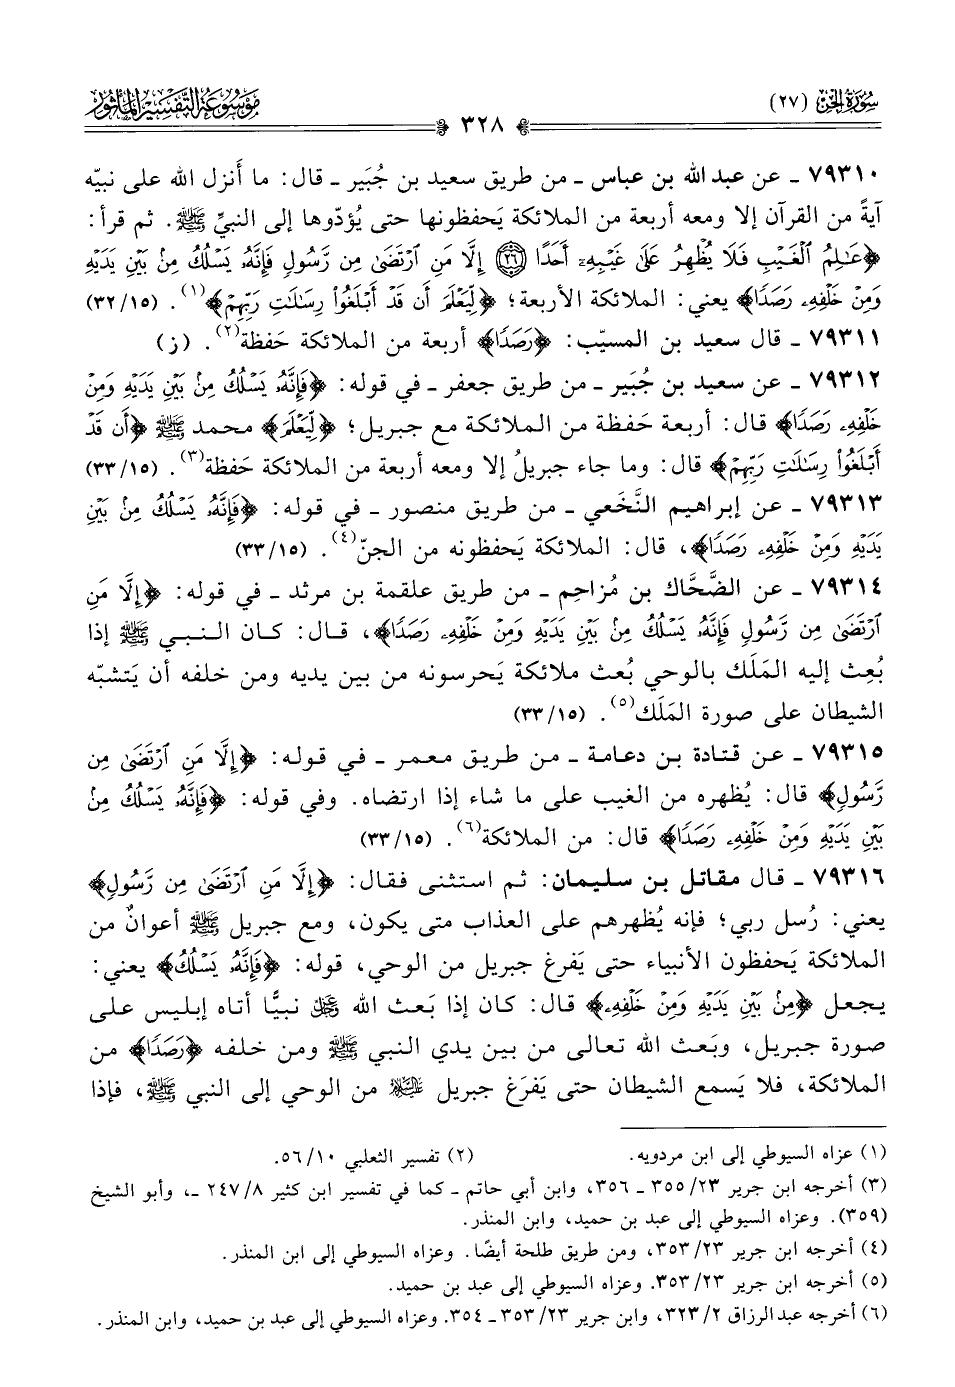 سُورَةُ الجِنّ (٢٧)
مَوْسُوعَةُ التَّفْسِيرِ المَأْثُور
٣٢٨
٧٩٣١٠ ـ عن عبد الله بن عباس ـ من طريق سعيد بن جُبَير ـ قال: ما أَنزل الله على نبيّه
آيةً من القرآن إلا ومعه أربعة من الملائكة يَحفظونها حتى يُؤدّوها إلى النبيِّ ﷺ. ثم قرأ:
﴿عَـٰلِمُ ٱلْغَيْبِ فَلَا يُظْهِرُ عَلَىٰ غَيْبِهِۦٓ أَحَدًا ۝٢٦ إِلَّا مَنِ ٱرْتَضَىٰ مِن رَّسُولٍ فَإِنَّهُۥ يَسْلُكُ مِنۢ بَيْنِ يَدَيْهِ
وَمِنْ خَلْفِهِۦ رَصَدًا﴾ يعني: الملائكة الأربعة؛ ﴿لِّيَعْلَمَ أَن قَدْ أَبْلَغُوا۟ رِسَـٰلَـٰتِ رَبِّهِمْ﴾(١). (٣٢/١٥)
٧٩٣١١ ـ قال سعيد بن المسيّب: ﴿رَصَدًا﴾ أربعة من الملائكة حَفظة(٢). (ز)
٧٩٣١٢ ـ عن سعيد بن جُبَير ـ من طريق جعفر ـ في قوله: ﴿فَإِنَّهُۥ يَسْلُكُ مِنۢ بَيْنِ يَدَيْهِ وَمِنْ
خَلْفِهِۦ رَصَدًا﴾ قال: أربعة حَفظة من الملائكة مع جبريل؛ ﴿لِّيَعْلَمَ﴾ محمد ﷺ ﴿أَن قَدْ
أَبْلَغُوا۟ رِسَـٰلَـٰتِ رَبِّهِمْ﴾ قال: وما جاء جبريلُ إلا ومعه أربعة من الملائكة حَفظة(٣). (٣٣/١٥)
٧٩٣١٣ ـ عن إبراهيم النَّخَعي ـ من طريق منصور ـ في قوله: ﴿فَإِنَّهُۥ يَسْلُكُ مِنۢ بَيْنِ
يَدَيْهِ وَمِنْ خَلْفِهِۦ رَصَدًا﴾، قال: الملائكة يَحفظونه من الجنّ(٤). (٣٣/١٥)
٧٩٣١٤ ـ عن الضَّحَّاك بن مُزاحِم ـ من طريق علقمة بن مرثد ـ في قوله: ﴿إِلَّا مَنِ
ٱرْتَضَىٰ مِن رَّسُولٍ فَإِنَّهُۥ يَسْلُكُ مِنۢ بَيْنِ يَدَيْهِ وَمِنْ خَلْفِهِۦ رَصَدًا﴾، قال: كان النبي ﷺ إذا
بُعِث إليه المَلَك بالوحي بُعث ملائكة يَحرسونه من بين يديه ومن خلفه أن يَتشبّه
الشيطان على صورة المَلَك(٥). (٣٣/١٥)
٧٩٣١٥ ـ عن قتادة بن دعامة ـ من طريق معمر ـ في قوله: ﴿إِلَّا مَنِ ٱرْتَضَىٰ مِن
رَّسُولٍ﴾ قال: يُظهره من الغيب على ما شاء إذا ارتضاه. وفي قوله: ﴿فَإِنَّهُۥ يَسْلُكُ مِنۢ
بَيْنِ يَدَيْهِ وَمِنْ خَلْفِهِۦ رَصَدًا﴾ قال: من الملائكة(٦). (٣٣/١٥)
٧٩٣١٦ ـ قال مقاتل بن سليمان: ثم استثنى فقال: ﴿إِلَّا مَنِ ٱرْتَضَىٰ مِن رَّسُولٍ﴾
يعني: رُسل ربي؛ فإنه يُظهرهم على العذاب متى يكون، ومع جبريل ﷺ أعوانٌ من
الملائكة يَحفظون الأنبياء حتى يَفرغ جبريل من الوحي، قوله: ﴿فَإِنَّهُۥ يَسْلُكُ﴾ يعني:
يجعل ﴿مِنۢ بَيْنِ يَدَيْهِ وَمِنْ خَلْفِهِۦ﴾ قال: كان إذا بَعث الله ﷿ نبيًّا أتاه إبليس على
صورة جبريل، وبَعث الله تعالى من بين يدي النبي ﷺ ومن خلفه ﴿رَصَدًا﴾ من
الملائكة، فلا يَسمع الشيطان حتى يَفرَغ جبريل ﵇ من الوحي إلى النبي ﷺ، فإذا
(١) عزاه السيوطي إلى ابن مردويه. (٢) تفسير الثعلبي ٥٦/١٠.
(٣) أخرجه ابن جرير ٣٥٥/٢٣ ـ ٣٥٦، وابن أبي حاتم ـ كما في تفسير ابن كثير ٢٤٧/٨ ـ، وأبو الشيخ
(٣٥٩). وعزاه السيوطي إلى عبد بن حميد، وابن المنذر.
(٤) أخرجه ابن جرير ٣٥٣/٢٣، ومن طريق طلحة أيضًا. وعزاه السيوطي إلى ابن المنذر.
(٥) أخرجه ابن جرير ٣٥٣/٢٣. وعزاه السيوطي إلى عبد بن حميد.
(٦) أخرجه عبد الرزاق ٣٢٣/٢، وابن جرير ٣٥٣/٢٣ ـ ٣٥٤. وعزاه السيوطي إلى عبد بن حميد، وابن المنذر.